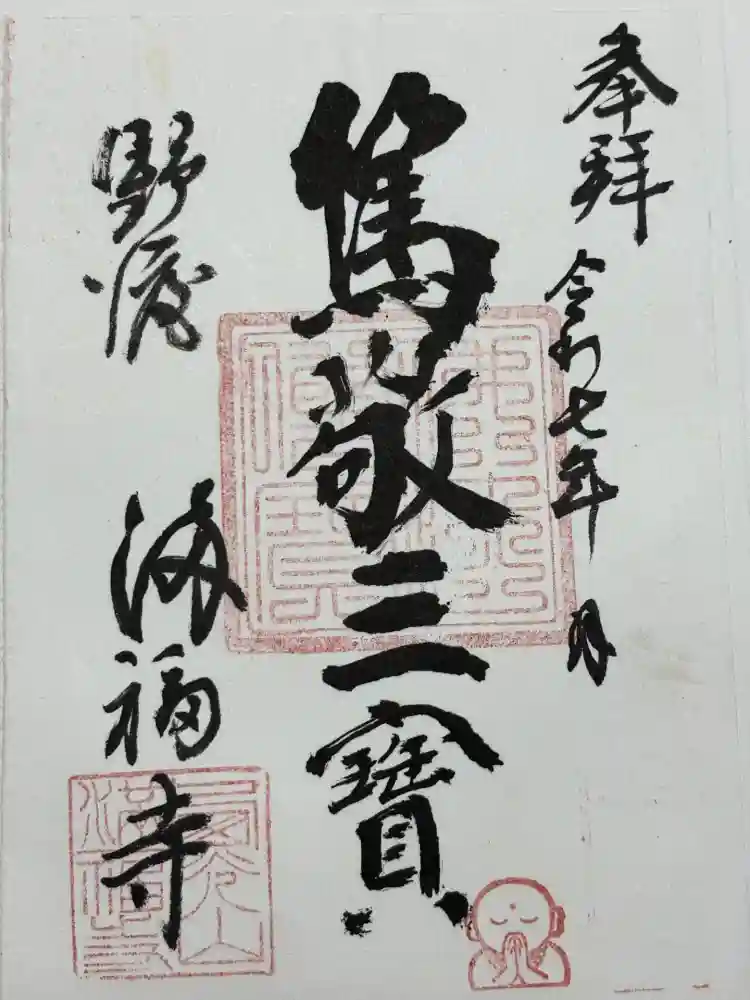 奉拝 令和七年 月
篤敬三寶
野渡 満福寺